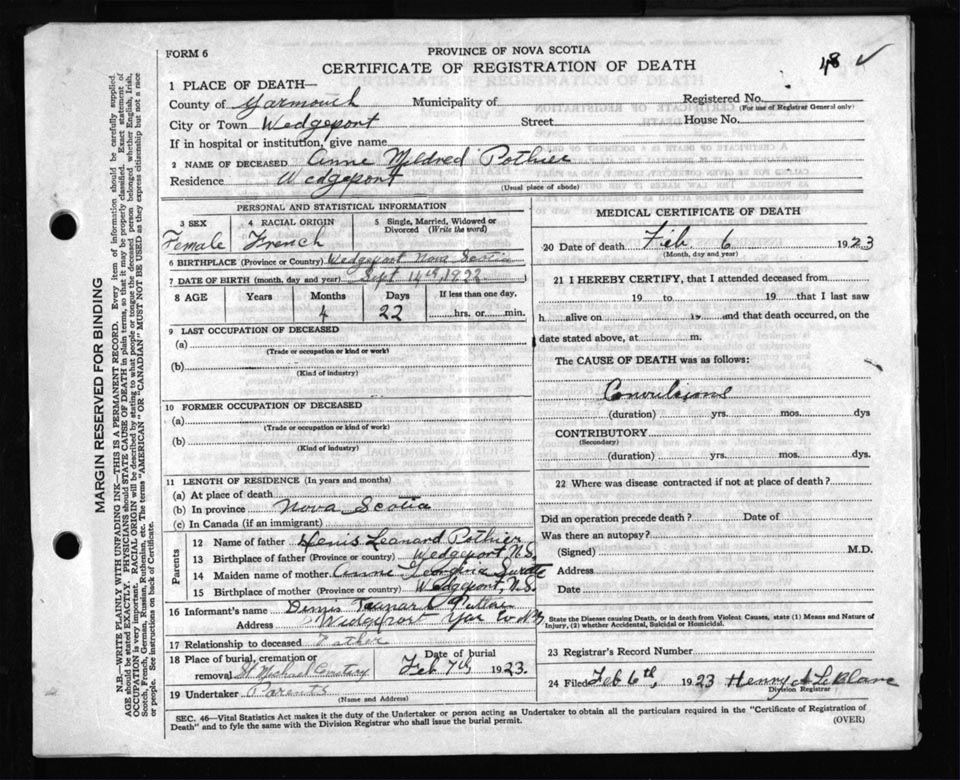 FORM 6
PROVINCE OF NOVA SCOTIA
CERTIFICATE OF REGISTRATION OF DEATH
48 ✓
1 PLACE OF DEATH—
County of Yarmouth Municipality of
Registered No.
(For use of Registrar General only)
City or Town Wedgeport Street House No.
If in hospital or institution, give name
2 NAME OF DECEASED Anne Mildred Pothier
Residence Wedgeport
(Usual place of abode)
PERSONAL AND STATISTICAL INFORMATION
3 SEX 4 RACIAL ORIGIN 5 Single, Married, Widowed or Divorced (Write the word)
Female French
6 BIRTHPLACE (Province or Country) Wedgeport Nova Scotia
7 DATE OF BIRTH (month, day and year) Sept 14th, 1922
8 AGE Years Months Days If less than one day,
4 22 hrs. or min.
9 LAST OCCUPATION OF DECEASED
(a)
(Trade or occupation or kind or work)
(b)
(Kind of industry)
10 FORMER OCCUPATION OF DECEASED
(a)
(Trade or occupation or kind of work)
(b)
(Kind of industry)
11 LENGTH OF RESIDENCE (In years and months)
(a) At place of death
(b) In province Nova Scotia
(c) In Canada (if an immigrant)
Parents
12 Name of father Denis Leanard Pothier
13 Birthplace of father (Province or country) Wedgeport, N.S.
14 Maiden name of mother Anne Georgina Surette
15 Birthplace of mother (Province or country) Wedgeport, N.S.
16 Informant's name Dennis
Address Wedgeport Yar Co N.S.
17 Relationship to deceased Father
18 Place of burial, cremation or removal St Michael Cemetary
Date of burial Feb 7th, 1923.
19 Undertaker Parents
(Name and Address)
MEDICAL CERTIFICATE OF DEATH
20 Date of death Feb 6 1923
(Month, day and year)
21 I HEREBY CERTIFY, that I attended deceased from
19 to 19 that I last saw
h alive on 19 and that death occurred, on the
date stated above, at m.
The CAUSE OF DEATH was as follows:
Convulsions
(duration) yrs. mos. dys
CONTRIBUTORY
(Secondary)
(duration) yrs. mos. dys.
22 Where was disease contracted if not at place of death?
Did an operation precede death? Date of
Was there an autopsy?
(Signed) M.D.
Address
Date
State the Disease causing Death, or in death from Violent Causes, state (1) Means and Nature of
Injury, (2) whether Accidental, Suicidal or Homicidal.
23 Registrar's Record Number
24 Filed Feb 6th, 1923 Henry A LeBlanc
Division Registrar
SEC. 46—Vital Statistics Act makes it the duty of the Undertaker or person acting as Undertaker to obtain all the particulars required in the "Certificate of Registration of
Death" and to fyle the same with the Division Registrar who shall issue the burial permit.
(OVER)
MARGIN RESERVED FOR BINDING
N.B.—WRITE PLAINLY WITH UNFADING INK—THIS IS A PERMANENT RECORD. Every item of information should be carefully supplied.
AGE should be stated EXACTLY. PHYSICIANS should STATE CAUSE OF DEATH in plain terms, so that it may be properly classified. Exact statement of
OCCUPATION is very important. RACIAL ORIGIN will be described by stating to what people or tongue the deceased person belonged whether English, Irish,
Scotch, French, German, Russian, Ruthenian, etc. The terms "AMERICAN" OR "CANADIAN" MUST NOT BE USED as they express citizenship but not a race
or people. See instructions on back of Certificate.